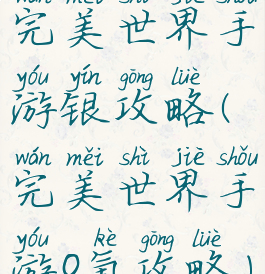 wán měi shì jiè shǒu
完美世界手
yóu yín gōng lüè
游银攻略(
wán měi shì jiè shǒu
完美世界手
yóu kè gōng lüè
游0氪攻略)